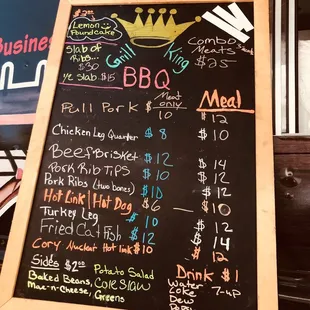 $2.00
Lemon
Poundcake
Business
Slab of
Ribs...
$30
½ Slab $15
Grill King
BBQ
Combo
Meats
$25
Meat
only
Meal
Pull Pork $10 $12
Chicken Leg Quarter $8 $10
Beef Brisket $12 $14
Pork Rib Tips $10 $12
Pork Ribs (two bones) $10 $12
Hot Link | Hot Dog $6 — $10
Turkey Leg $10 $12
Fried Catfish $12 $14
Cory Nuclear Hot link $10 $12
Sides $2.00
Baked Beans, Potato Salad
Mac-n-Cheese, Coleslaw
Greens
Drink $1
Water 7-up
Coke
Dew
Pepsi